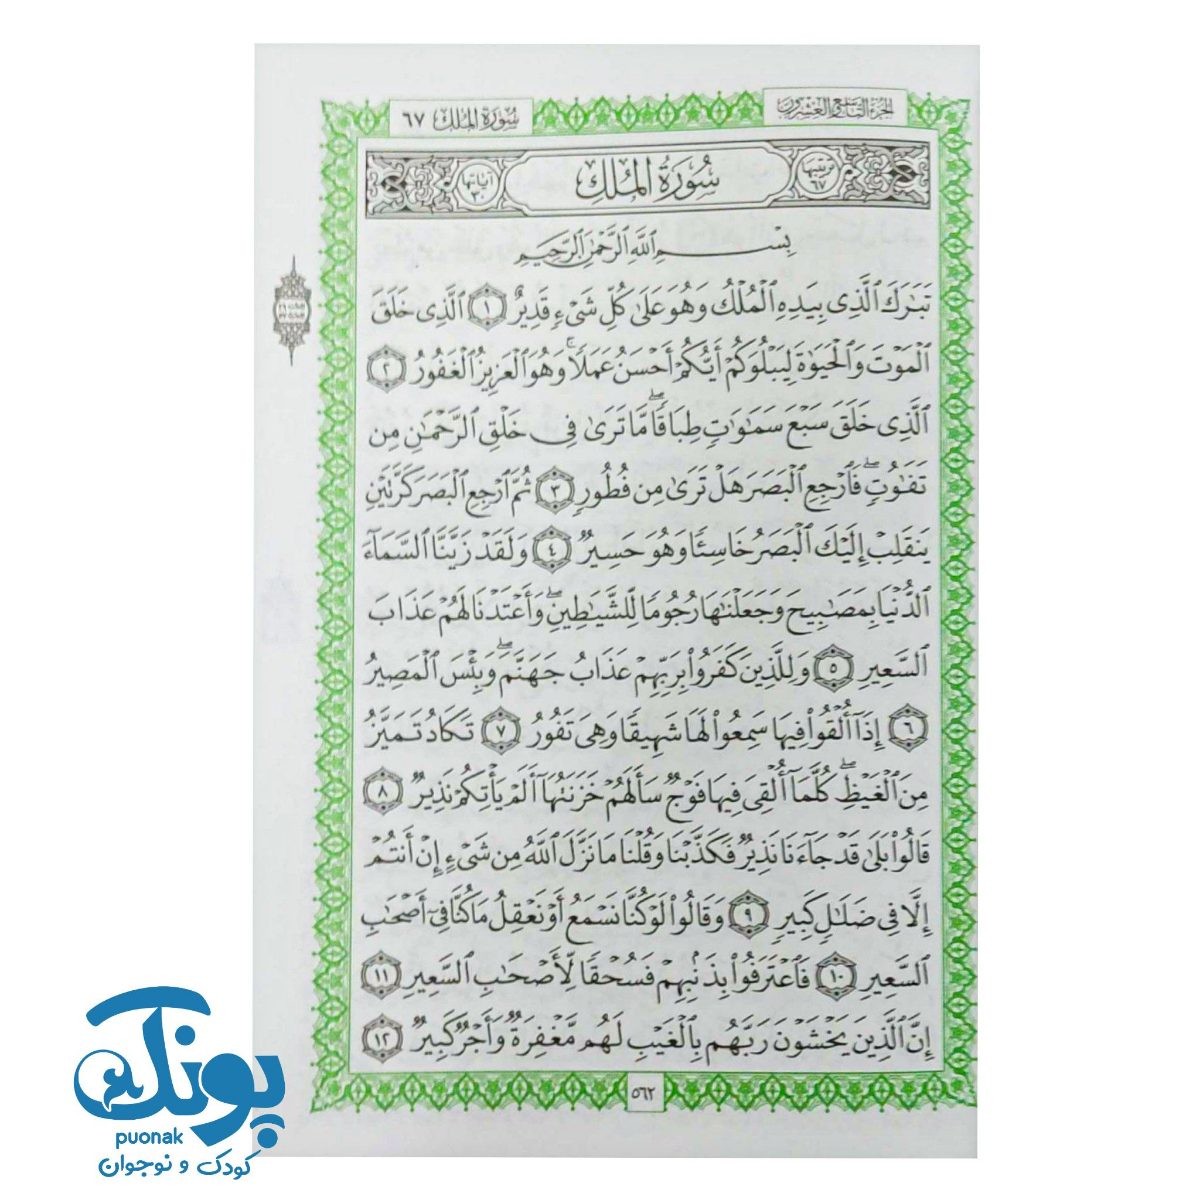 الجزء التاسع والعشرون
سورة الملك ٦٧
ترتيبها ٦٧
سُورَةُ المُلكِ
آياتها ٣٠
بِسْمِ ٱللَّهِ ٱلرَّحْمَٰنِ ٱلرَّحِيمِ
تَبَٰرَكَ ٱلَّذِى بِيَدِهِ ٱلْمُلْكُ وَهُوَ عَلَىٰ كُلِّ شَىْءٍ قَدِيرٌ ١ ٱلَّذِى خَلَقَ
ٱلْمَوْتَ وَٱلْحَيَوٰةَ لِيَبْلُوَكُمْ أَيُّكُمْ أَحْسَنُ عَمَلًا ۚ وَهُوَ ٱلْعَزِيزُ ٱلْغَفُورُ ٢
ٱلَّذِى خَلَقَ سَبْعَ سَمَٰوَٰتٍ طِبَاقًا ۖ مَّا تَرَىٰ فِى خَلْقِ ٱلرَّحْمَٰنِ مِن
تَفَٰوُتٍ ۖ فَٱرْجِعِ ٱلْبَصَرَ هَلْ تَرَىٰ مِن فُطُورٍ ٣ ثُمَّ ٱرْجِعِ ٱلْبَصَرَ كَرَّتَيْنِ
يَنقَلِبْ إِلَيْكَ ٱلْبَصَرُ خَاسِئًا وَهُوَ حَسِيرٌ ٤ وَلَقَدْ زَيَّنَّا ٱلسَّمَآءَ
ٱلدُّنْيَا بِمَصَٰبِيحَ وَجَعَلْنَٰهَا رُجُومًا لِّلشَّيَٰطِينِ ۖ وَأَعْتَدْنَا لَهُمْ عَذَابَ
ٱلسَّعِيرِ ٥ وَلِلَّذِينَ كَفَرُوا۟ بِرَبِّهِمْ عَذَابُ جَهَنَّمَ ۖ وَبِئْسَ ٱلْمَصِيرُ
٦ إِذَآ أُلْقُوا۟ فِيهَا سَمِعُوا۟ لَهَا شَهِيقًا وَهِىَ تَفُورُ ٧ تَكَادُ تَمَيَّزُ
مِنَ ٱلْغَيْظِ ۖ كُلَّمَآ أُلْقِىَ فِيهَا فَوْجٌ سَأَلَهُمْ خَزَنَتُهَآ أَلَمْ يَأْتِكُمْ نَذِيرٌ ٨
قَالُوا۟ بَلَىٰ قَدْ جَآءَنَا نَذِيرٌ فَكَذَّبْنَا وَقُلْنَا مَا نَزَّلَ ٱللَّهُ مِن شَىْءٍ إِنْ أَنتُمْ
إِلَّا فِى ضَلَٰلٍ كَبِيرٍ ٩ وَقَالُوا۟ لَوْ كُنَّا نَسْمَعُ أَوْ نَعْقِلُ مَا كُنَّا فِىٓ أَصْحَٰبِ
ٱلسَّعِيرِ ١٠ فَٱعْتَرَفُوا۟ بِذَنۢبِهِمْ فَسُحْقًا لِّأَصْحَٰبِ ٱلسَّعِيرِ ١١
إِنَّ ٱلَّذِينَ يَخْشَوْنَ رَبَّهُم بِٱلْغَيْبِ لَهُم مَّغْفِرَةٌ وَأَجْرٌ كَبِيرٌ ١٢
٥٦٢
پونک
puonak
کودک و نوجوان